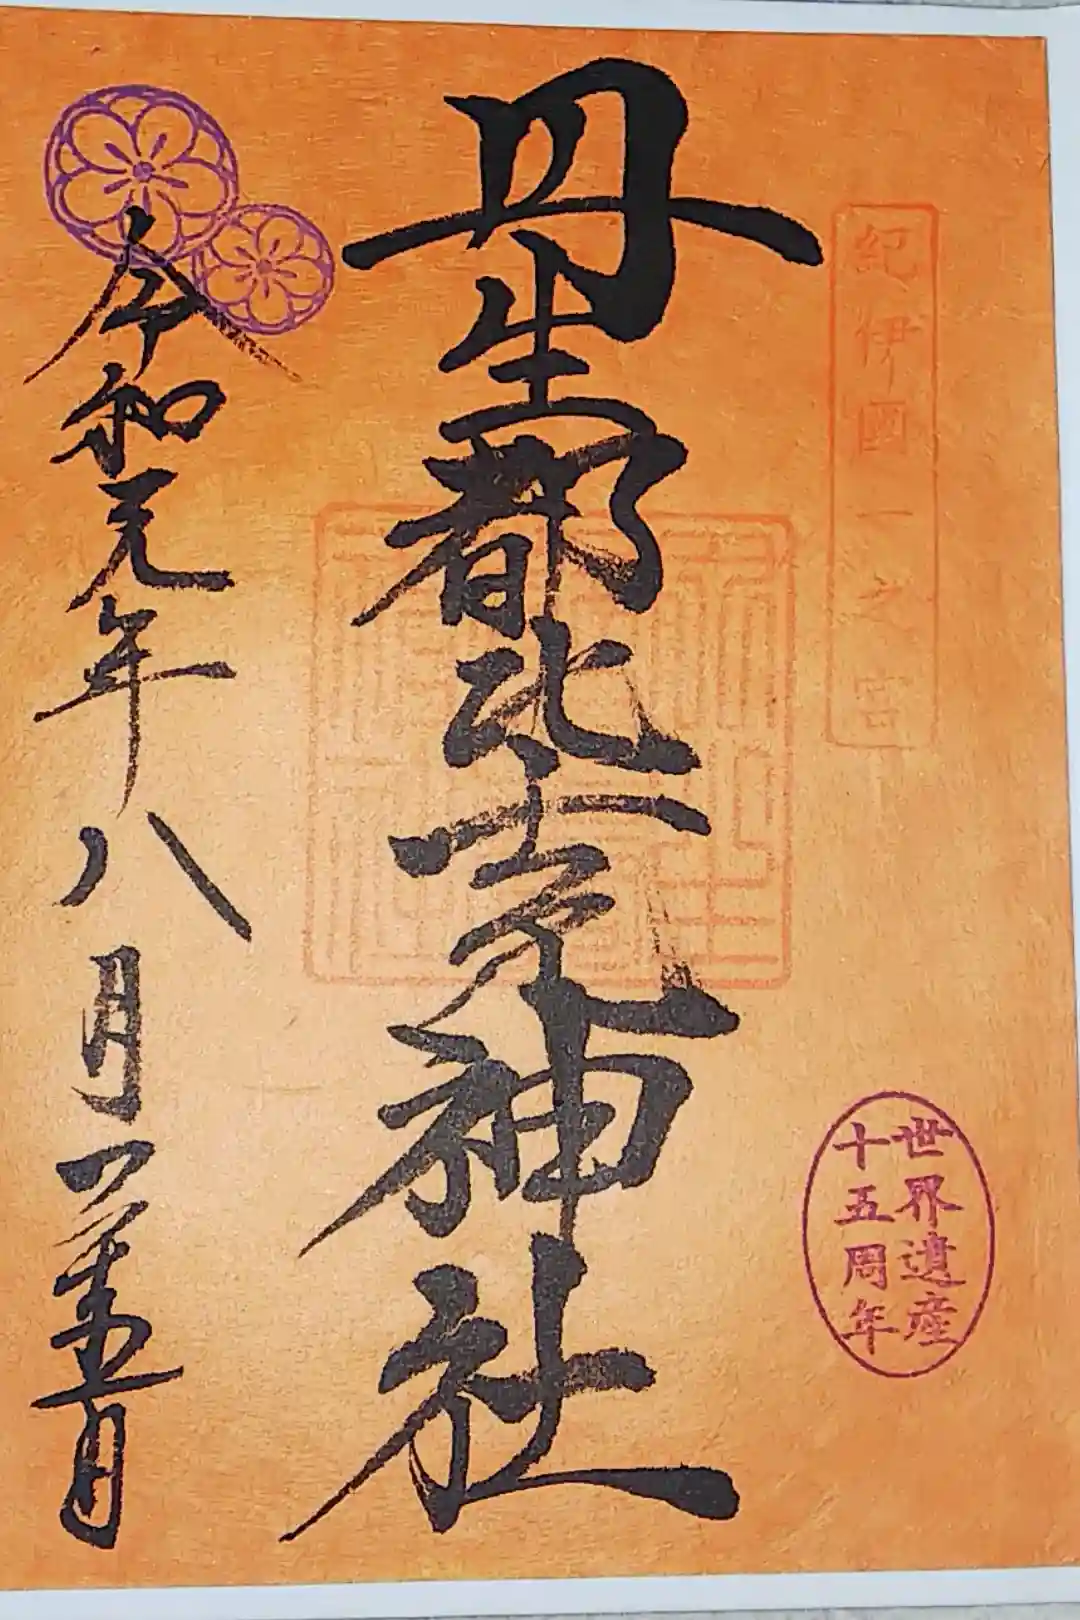 紀伊國一之宮
世界遺産
十五周年
丹生都比売神社
令和元年八月二十五日